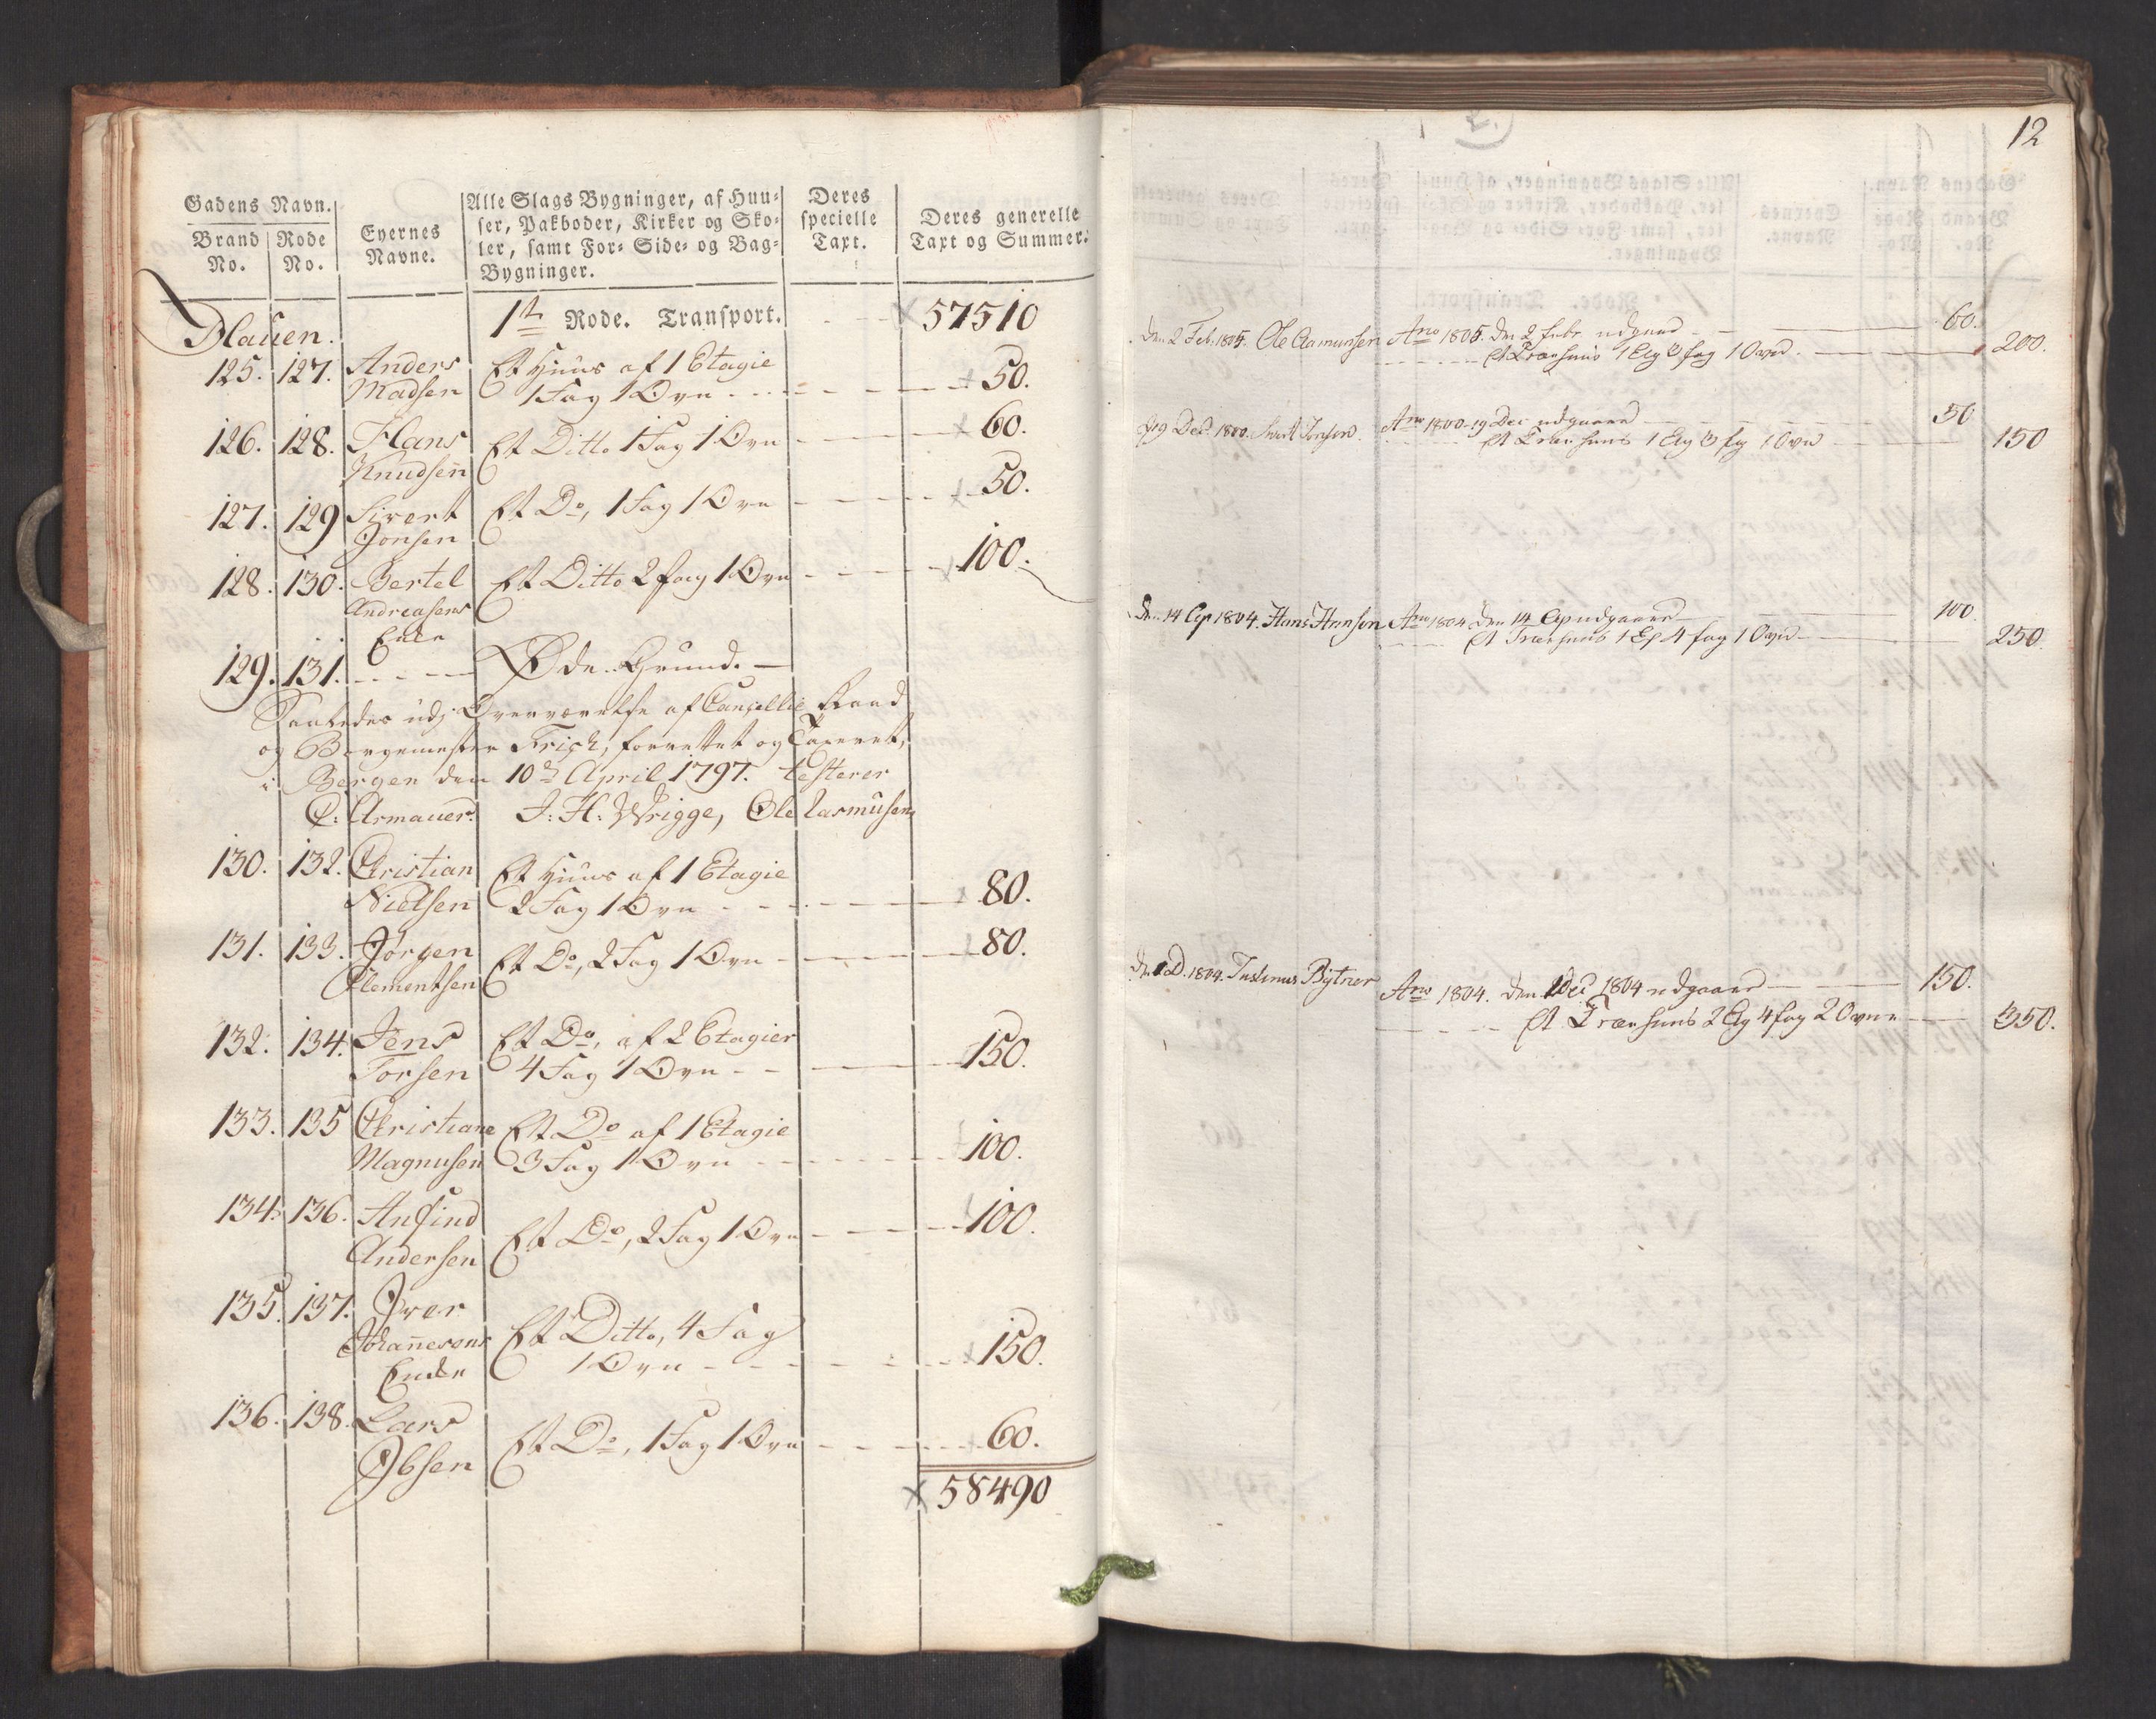 Gadens Navn.
Brand No.
Rode No.
Eyernes Navne.
Alle Slags Bygninger, af Huu-
ser, Pakboder, Kirker og Sko-
ler, samt For- Side- og Bag-
Bygninger.
Deres
specielle
Taxt.
Deres generelle
Taxt og Summer.
1te Rode. Transport. 57510
125. 127. Anders Et Huus af 1 Etagie
Madsen 1 Fag 1 Ovn 50.
126. 128. Hans Et Ditto 1 Fag 1 Ovn 60.
Knudsen
127. 129 Sivert Et Do, 1 Fag 1 Ovn 50.
Jonsen
128. 130. Bertel Et Ditto 2 fag 1 Ovn 100.
Andreasens
Enke
129. 131. Øde Grund.
Saaledes udj Overværelse af Cancellie Raad
og Borgemester Frich, forrettet og Taxeret,
i Bergen den 10de April 1797. testerer
C: Armauer. J: H: Wrigge, Ole Rasmusen
130. 132. Christian Et Huus af 1 Etagie
Nielsen 2 Fag 1 Ovn 80.
131. 133. Jørgen Et Do, 2 Fag 1 Ovn 80.
Clementsen
132. 134. Jens Et Do, af 2 Etagier
Torsen 4 Fag 1 Ovn 150.
133. 135 Christiane Et Do af 1 Etagie
Magnusen 3 Fag 1 Ovn 100.
134. 136. Anfind Et Do, 2 Fag 1 Ovn 100.
Andersen
135. 137. Iver Et Ditto, 4 Fag
Johannesens 1 Ovn 150.
Enke
136. 138. Lars Et Do, 1 Fag 1 Ovn 60.
Ibsen
58490
12
den 2 Feb. 1805. Ole Aamunsen Ano 1805. den 2 Febr udgaaed 60.
Et Træehuus 1 Etg 3 fag 1 Ovn. 200.
19 Dec 1800. Sivert Jonsen. Ano 1800. 19 Dec udgaaed 50
Et Træehuus 1 Etg 3 fg 1 Ovn 150
den 14 Ap 1804. Hans Hansen Ano 1804 den 14 Ap udgaaed 100.
Et Træehuus 1 Et 4 fag 1 Ovn 250.
den 1 D. 1804. Bÿtner Ano 1804. den 1 Dec 1804 udgaaed 150.
Et Træehuus 2 Etg 4 fag 2 Ovne 350.